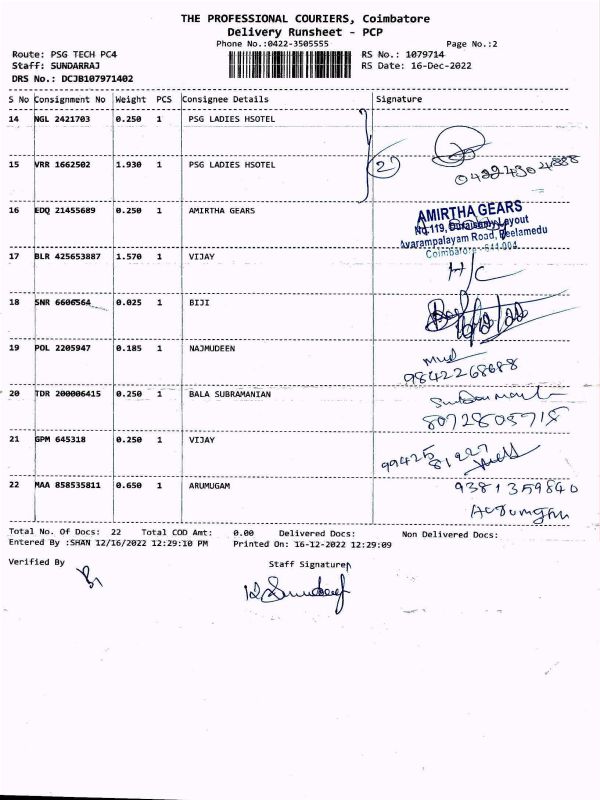 THE PROFESSIONAL COURIERS, Coimbatore
Delivery Runsheet - PCP
Phone No.:0422-3505555 Page No.:2
Route: PSG TECH PC4 RS No.: 1079714
Staff: SUNDARRAJ RS Date: 16-Dec-2022
DRS No.: DCJB107971402
S No Consignment No Weight PCS Consignee Details Signature
14 NGL 2421703 0.250 1 PSG LADIES HSOTEL
15 VRR 1662502 1.930 1 PSG LADIES HSOTEL 2
16 EDQ 21455689 0.250 1 AMIRTHA GEARS
AMIRTHA GEARS
No.119, Duraisamy Layout
Avarampalayam Road, Peelamedu
Coimbatore - 641 004
17 BLR 425653887 1.570 1 VIJAY H/C
18 SNR 6606564 0.025 1 BIJI 16/12/22
19 POL 2205947 0.185 1 NAJMUDEEN
9842268688
20 TDR 200006415 0.250 1 BALA SUBRAMANIAN
8072805718
21 GPM 645318 0.250 1 VIJAY
99425 81227
22 MAA 858535811 0.650 1 ARUMUGAM 9381359840
Total No. Of Docs: 22 Total COD Amt: 0.00 Delivered Docs: Non Delivered Docs:
Entered By :SHAN 12/16/2022 12:29:10 PM Printed On: 16-12-2022 12:29:09
Verified By Staff Signature